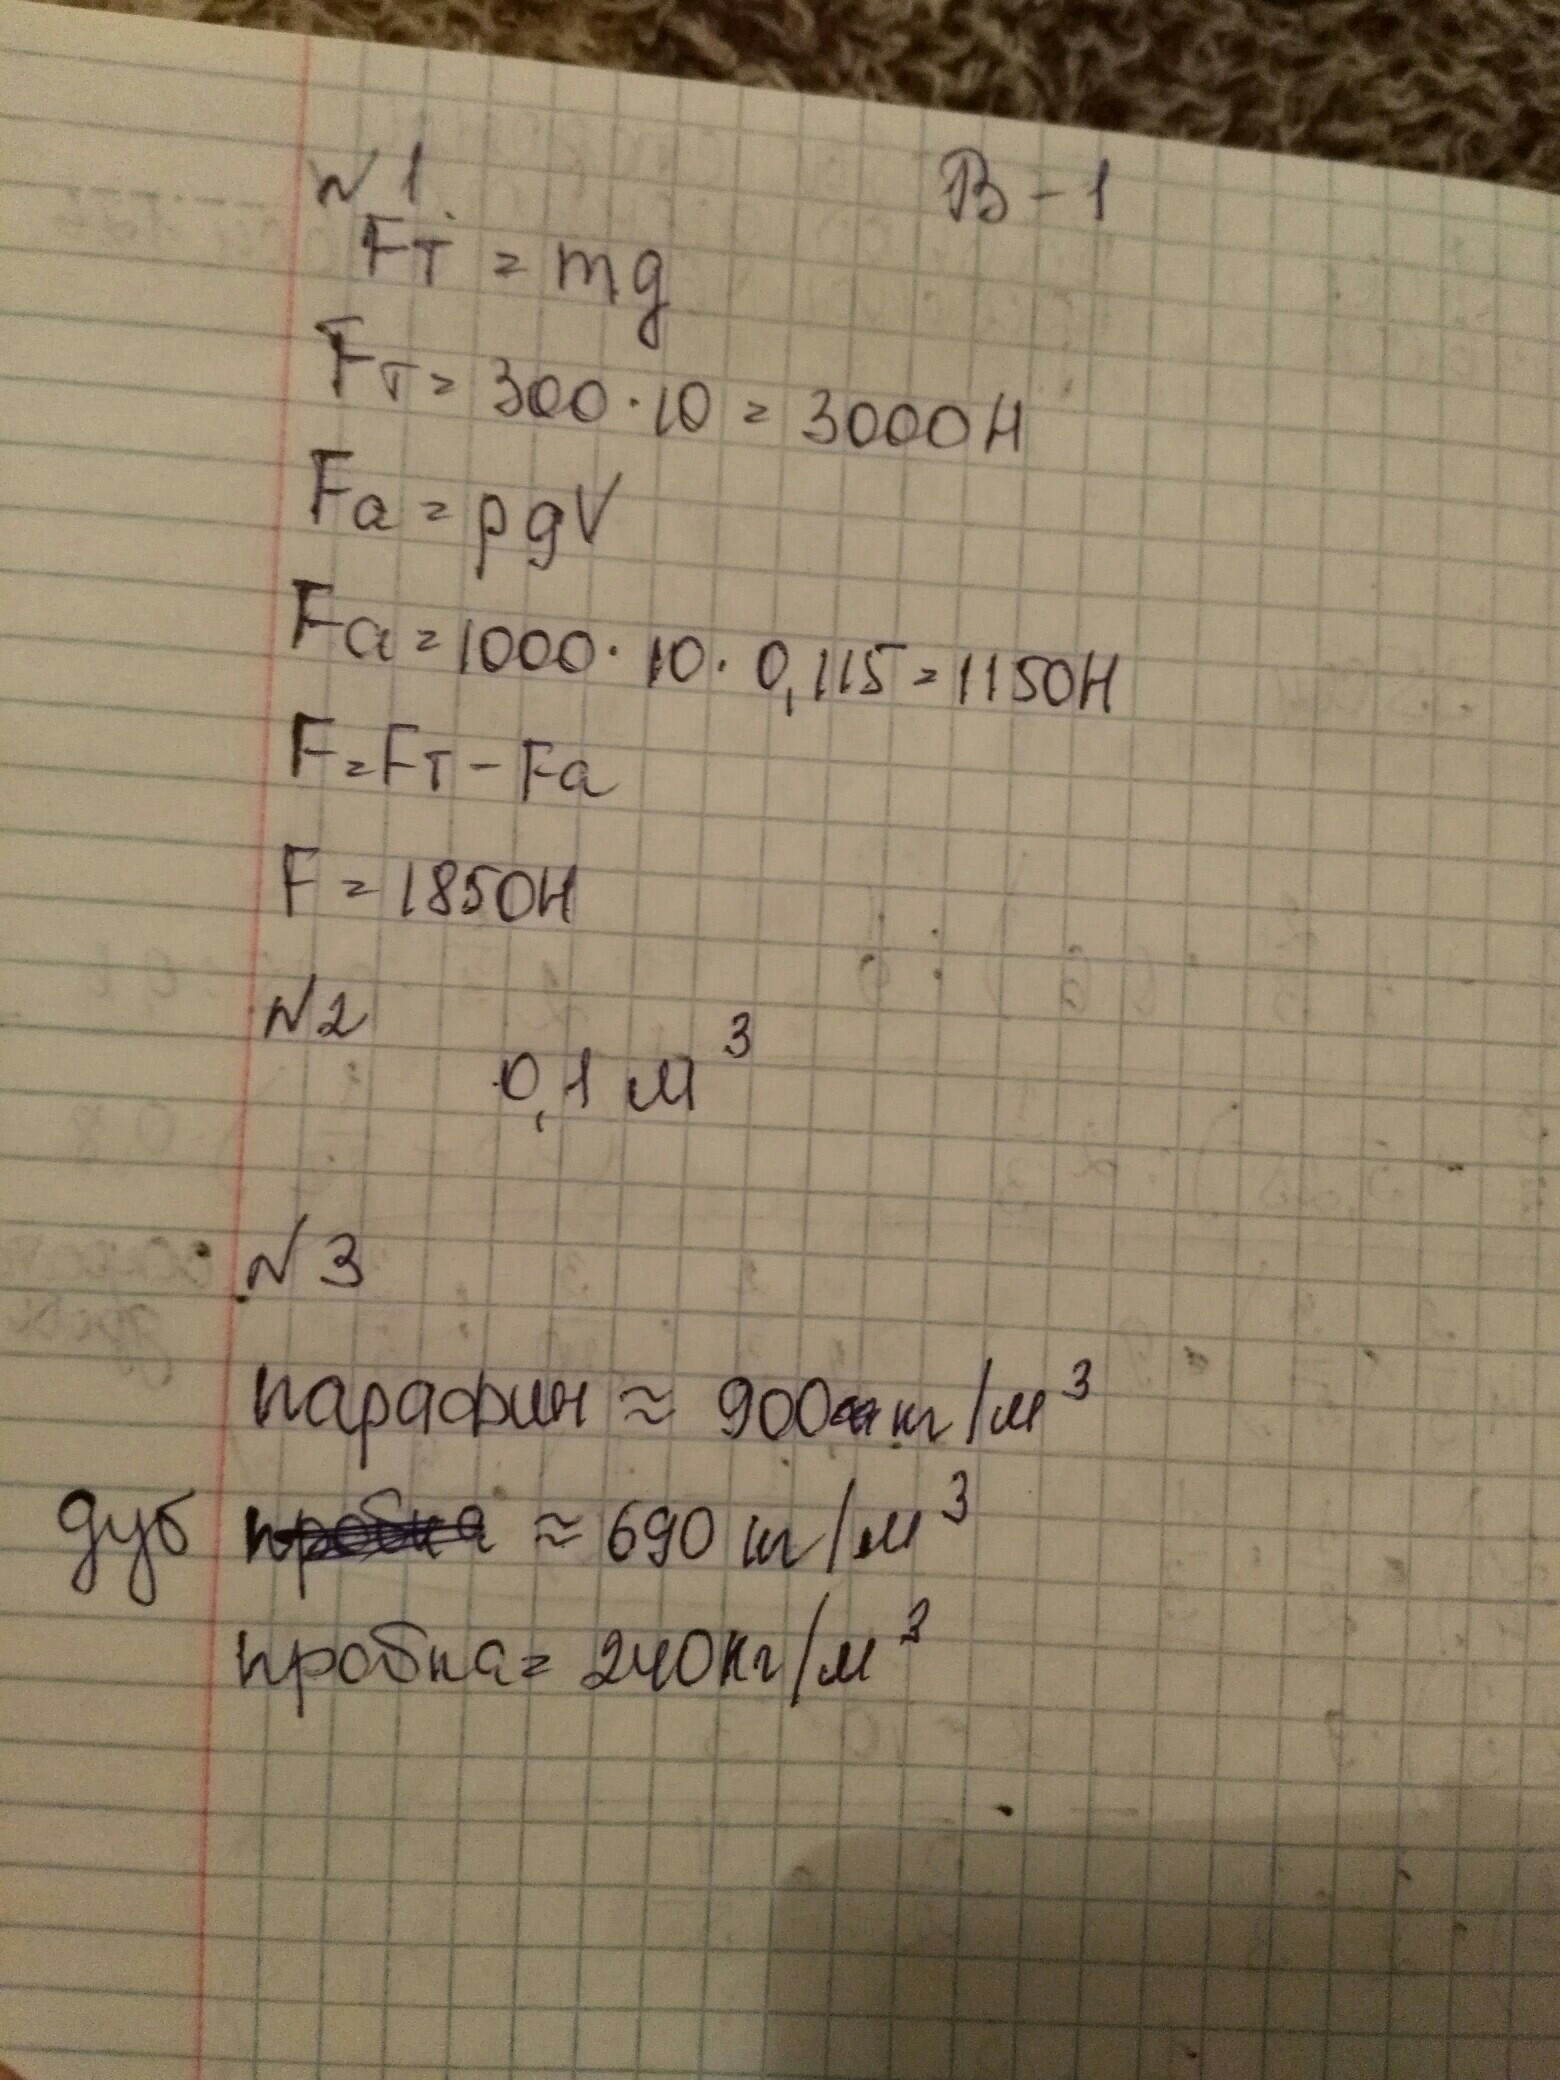 №1 В-1
Fт = mg
Fт = 300·10 = 3000Н
Fа = pgV
Fа = 1000·10·0,115=1150Н
F=Fт-Fа
F=1850Н
№2
0,1 м³
№3
парафин ≈ 900 кг/м³
дуб пробка ≈ 690 кг/м³
пробка = 240кг/м³